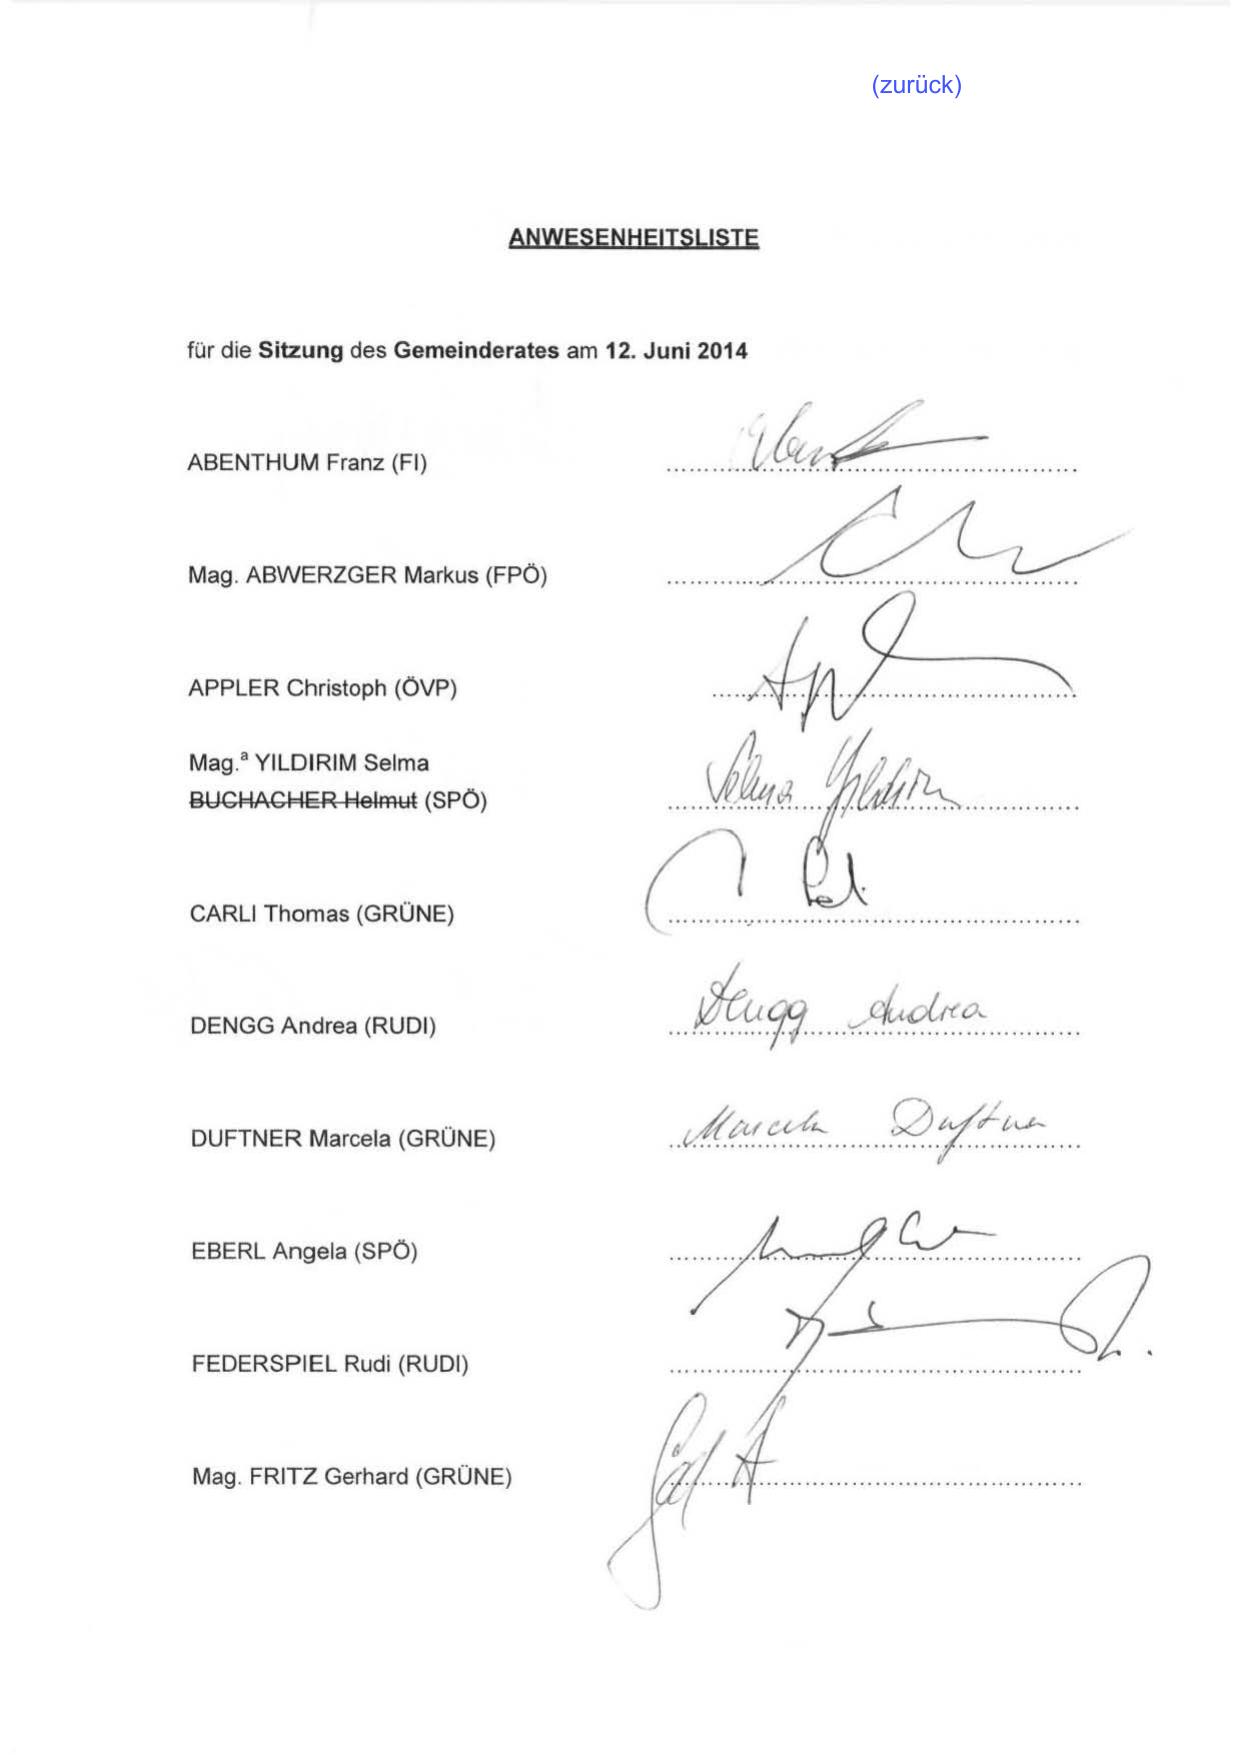 (zurück)
ANWESENHEITSLISTE
für die Sitzung des Gemeinderates am 12. Juni 2014
ABENTHUM Franz (FI)
Mag. ABWERZGER Markus (FPÖ)
APPLER Christoph (ÖVP)
Mag.ª YILDIRIM Selma
BUCHACHER Helmut (SPÖ) Selma Yildirim
CARLI Thomas (GRÜNE)
DENGG Andrea (RUDI) Dengg Andrea
DUFTNER Marcela (GRÜNE) Marcela Duftner
EBERL Angela (SPÖ)
FEDERSPIEL Rudi (RUDI)
Mag. FRITZ Gerhard (GRÜNE)